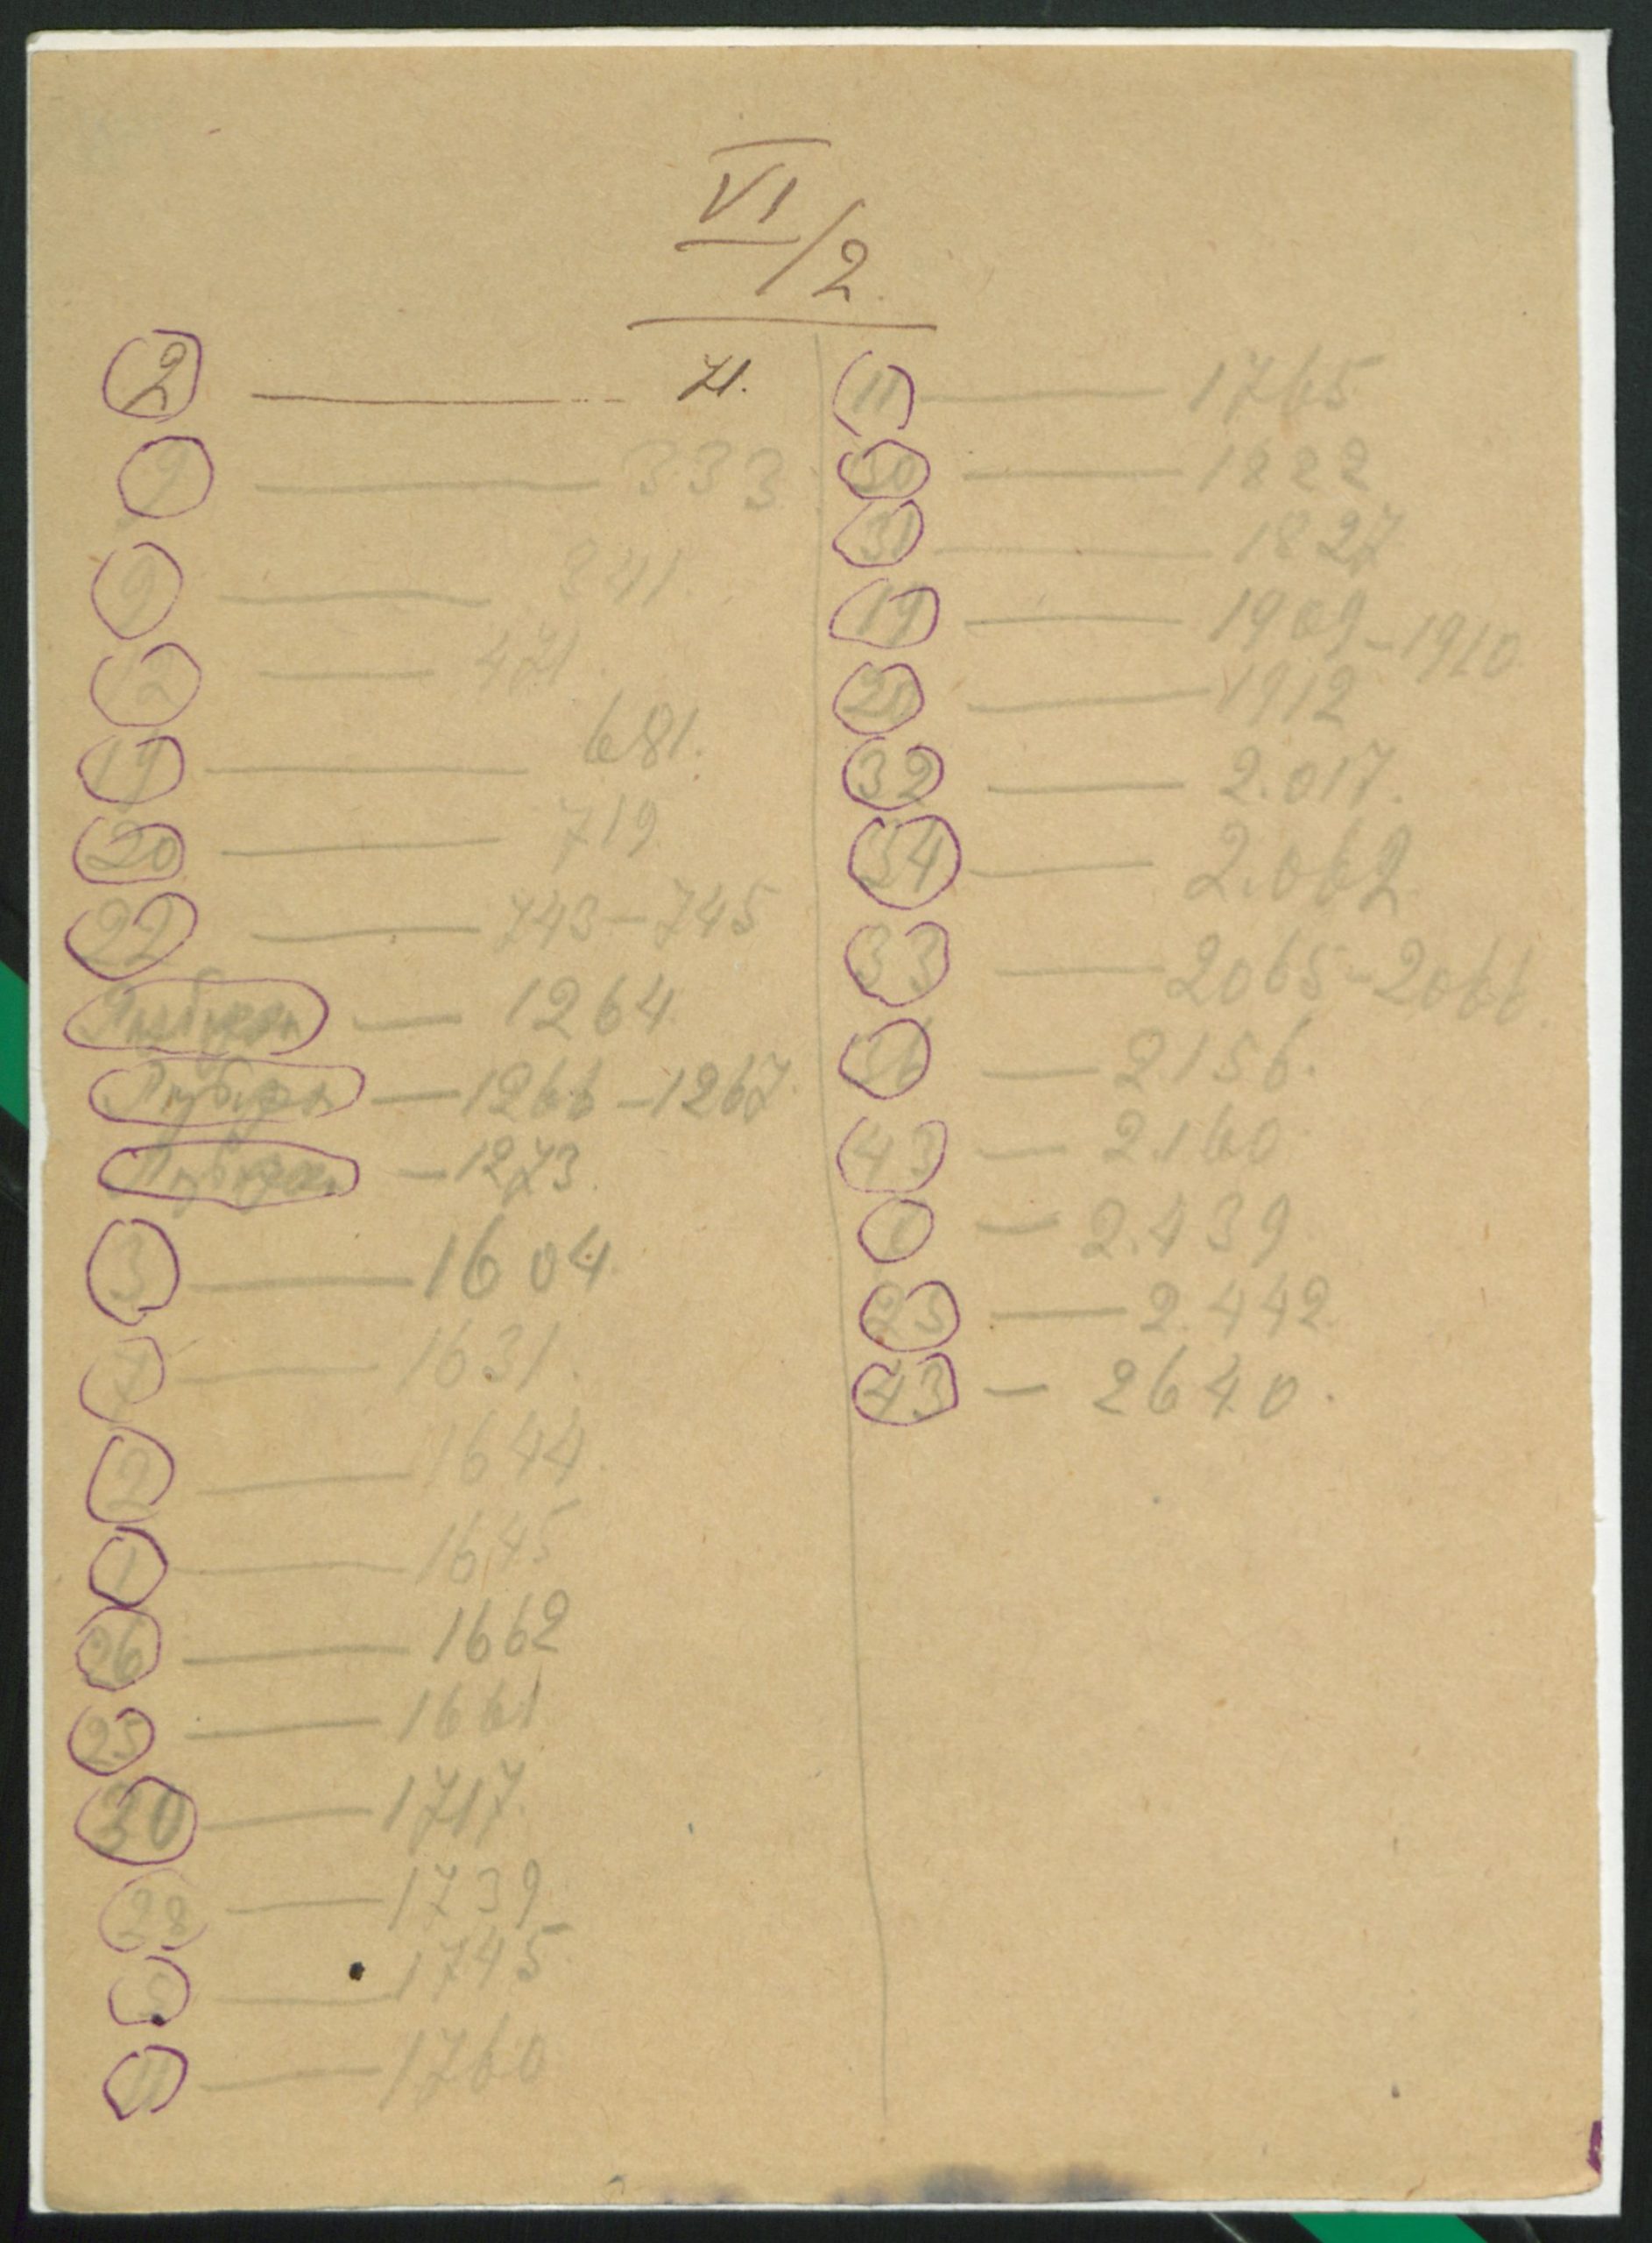 VI/2.
(2) — 71.
(9) — 333
(9) — 341.
(12) — 471.
(19) — 681.
(20) — 719
(22) — 743–745
— 1264
— 1266–1267.
— 1273.
(3) — 1604.
(7) — 1631.
(2) — 1644.
(1) — 1645
(26) — 1662
(25) — 1661
(30) — 1717.
(28) — 1739
— 1745.
(11) — 1760
(11) — 1765
(30) — 1822
(31) — 1827
(19) — 1909–1910
— 1912
(32) — 2.017.
(34) — 2.062.
(33) — 2065–2066.
— 2156.
(43) — 2.160
— 2.439
(25) — 2.442.
(43) — 2640.